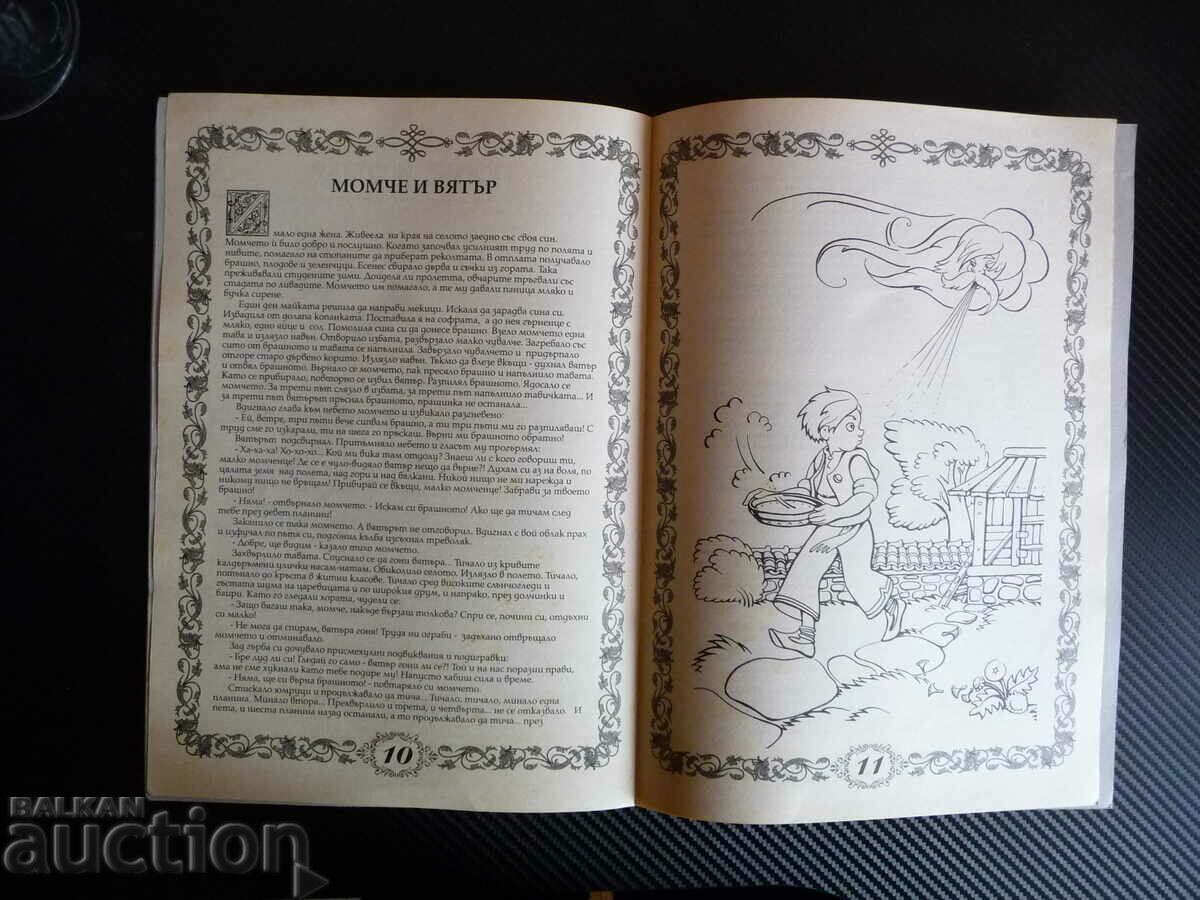 МОМЧЕ И ВЯТЪР
Имало една жена. Живеела на края на селото заедно със своя син.
Момчето ѝ било добро и послушно. Когато започвал усилният труд по полята и
нивите, помагало на стопаните да приберат реколтата. В отплата получавало
брашно, плодове и зеленчуци. Есенес събирало дърва и съчки из гората. Така
преживявали студените зими. Дойдела ли пролетта, овчарите тръгвали със
стадата по ливадите. Момчето им помагало, а те му давали паница мляко и
бучка сирене.
Един ден майката решила да направи мекици. Искала да зарадва сина си.
Извадила от долапа копанката. Поставила я на софрата, а до нея гърненце с
мляко, едно яйце и сол. Помолила сина си да донесе брашно. Взело момчето една
тава и излязло навън. Отворило избата, развързало малко чувалче. Загребало със
сито от брашното и тавата се напълнила. Завързало чувалчето и придърпало
отгоре старо дървено корито. Излязло навън. Тъкмо да влезе вкъщи - духнал вятър
и отвял брашното. Върнало се момчето, пак пресяло брашно и напълнило тавата.
Като се прибирало, повторно се извил вятър. Разпилял брашното. Ядосало се
момчето. За трети път слязло в избата, за трети път напълнило тавичката... И
за трети път вятърът пръснал брашното, прашинка не останала...
Вдигнало глава към небето момчето и извикало разгневено:
- Ей, ветре, три пъти вече сипвам брашно, а ти три пъти ми го разпиляваш! С
труд сме го изкарали, ти на шега го пръскаш. Върни ми брашното обратно!
Вятърът подсвирнал. Притъмняло небето и гласът му прогърмял:
- Ха-ха-ха! Хо-хо-хо... Кой ми вика там отдолу? Знаеш ли с кого говориш ти,
малко момченце! Де се е чуло-видяло вятър нещо да върне?! Духам си аз на воля, по
цялата земя над полета, над гори и над вълкани. Никой нищо не ми нарежда и
никому нищо не връщам! Прибирай се вкъщи, малко момченце! Забрави за твоето
брашно!
- Няма! - отвърнало момчето. - Искам си брашното! Ако ще да тичам след
тебе през девет планини!
Заканило се така момчето. А вятърът не отговорил. Вдигнал с вой облак прах
и изфучал по пътя си, подгонил кълба изсъхнал треволяк.
- Добре, ще видим - казало тихо момчето.
Захвърлило тавата. Спуснало се да гони вятъра... Тичало из кривите
калдъръмени улички насам-натам. Обиколило селото. Излязло в полето. Тичало,
потънало до кръста в житни класове. Тичало сред високите слънчогледи и
гъстата шума на царевицата и по широкия друм, и напряко, през долчинки и
баири. Като го гледали хората, чудели се:
- Защо бягаш така, момче, накъде бързаш толкова? Спри се, почини си, отдъхни
си малко!
- Не мога да спирам, вятъра гоня! Труда ни ограби - задъхано отвръщало
момчето и отминавало.
Зад гърба си дочувало присмехулни подвиквания и подигравки:
- Бре луд ли си! Гледай го само - вятър гони ли се?! Той и на нас поразии прави,
ама не сме хукнали като тебе подире му! Напусто хабиш сила и време.
- Няма, ще си върна брашното! - повтаряло си момчето.
Стискало юмруци и продължавало да тича... Тичало, тичало, минало една
планина. Минало втора... Прехвърлило и трета, и четвърта... не се отказвало. И
пета, и шеста планина назад останали, а то продължавало да тича... през
10
11
BALKAN
auction